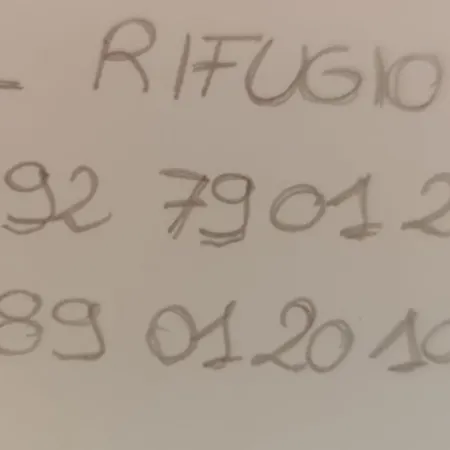 - RIFUGIO
92 79 01 2
89 01 20 10